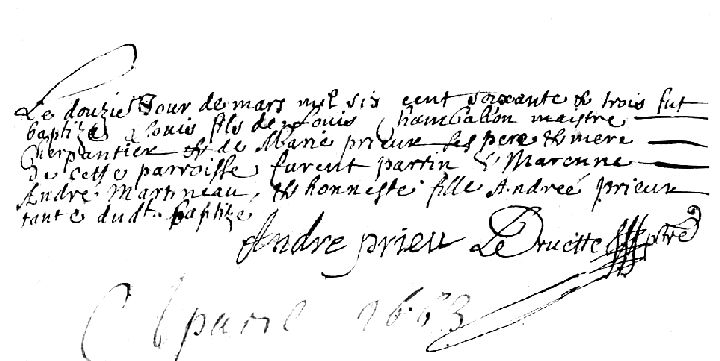 Le douzie Jour de mars mil six cent soixante & trois fut
baptizé Louis fils de Louis Chamballon maistre
Cherpantier & de Marie prieur ses pere & mere
de cette parroisse furent parrin & Marenne
André Martineau, & honneste fille Andreé prieur
tante dudt baptizé
Andre prieu Le Druette ptre
1663